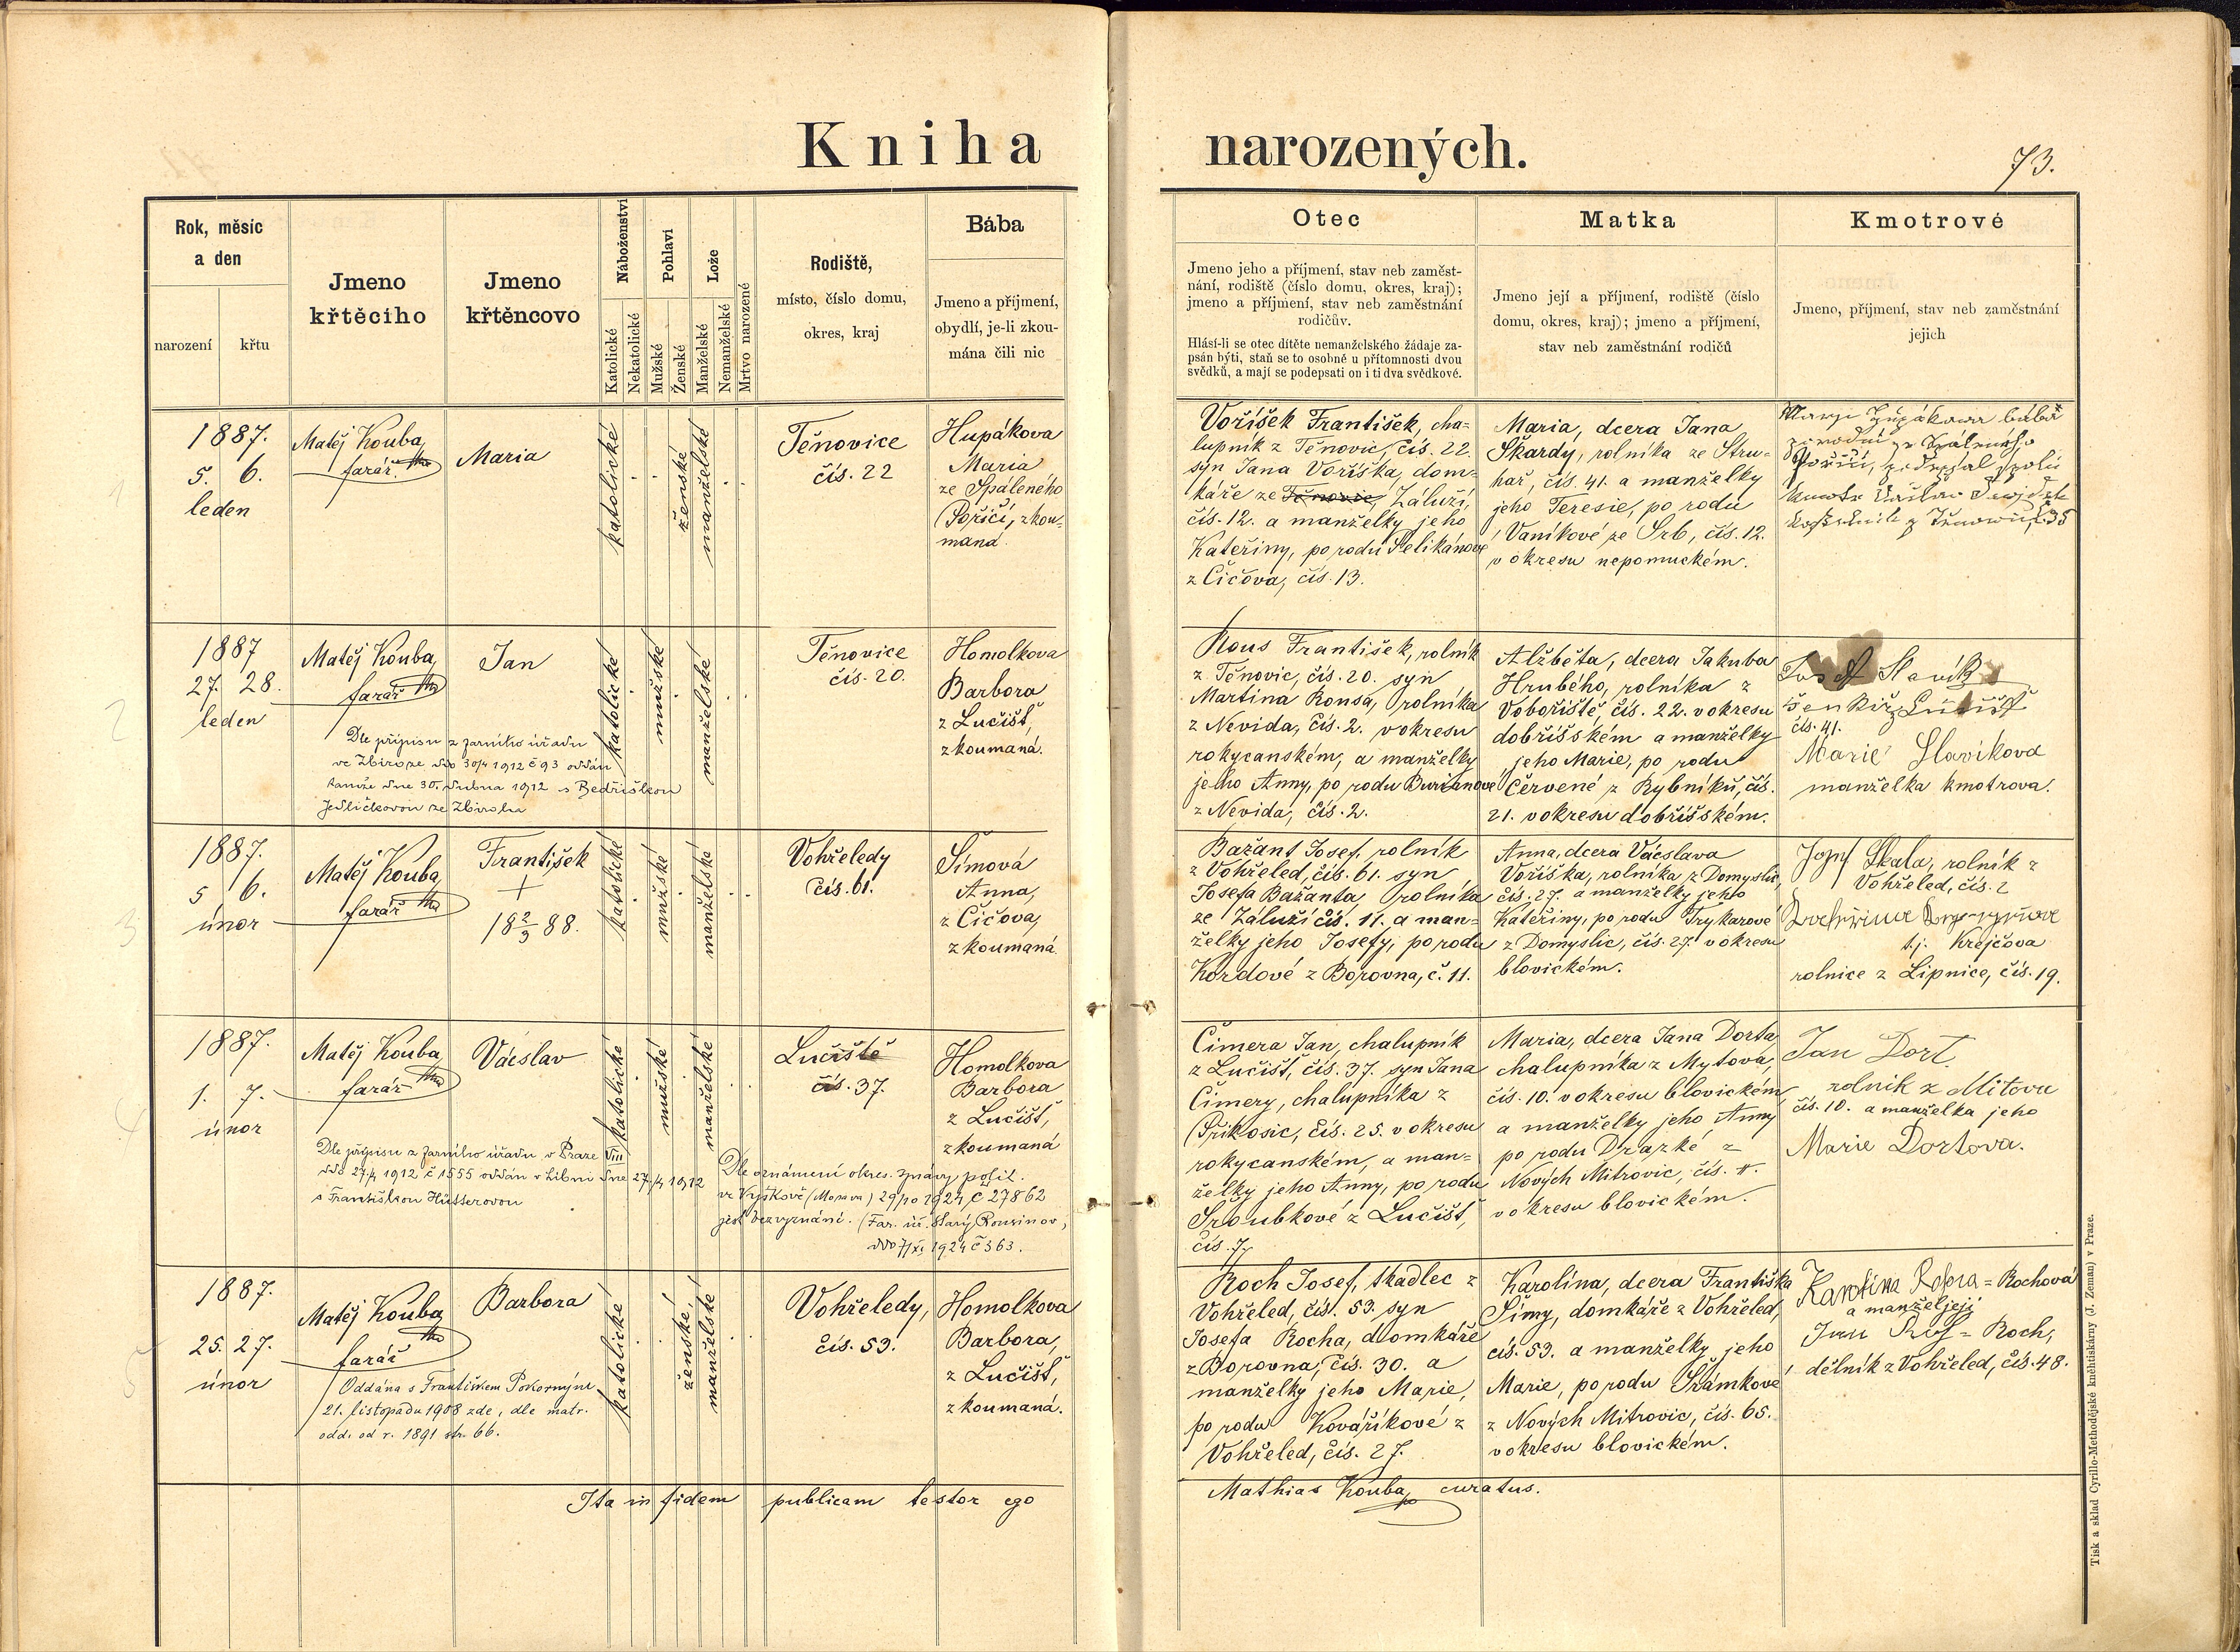 Kniha narozených.
73.
Rok, měsíc
a den
narození
křtu
Jmeno
křtěcího
Jmeno
křtěncovo
Náboženství
Katolické
Nekatolické
Pohlaví
Mužské
Ženské
Lože
Manželské
Nemanželské
Mrtvo narozené
Rodiště,
místo, číslo domu,
okres, kraj
Bába
Jmeno a příjmení,
obydlí, je-li zkou-
mána čili nic
Otec
Jmeno jeho a příjmení, stav neb zaměst-
nání, rodiště (číslo domu, okres, kraj);
jmeno a příjmení, stav neb zaměstnání
rodičův.
Hlásí-li se otec dítěte nemanželského žádaje za-
psán býti, staň se to osobně u přítomnosti dvou
svědků, a mají se podepsati on i ti dva svědkové.
Matka
Jmeno její a příjmení, rodiště (číslo
domu, okres, kraj); jmeno a příjmení,
stav neb zaměstnání rodičů
Kmotrové
Jmeno, příjmení, stav neb zaměstnání
jejich
1
1887.
5. 6.
leden
Matěj Kouba,
farář
Maria
katolické
ženské
manželské
Těnovice
čís. 22
Hupákova
Maria
ze Spáleného
Poříčí, zkou-
maná.
Voříšek František, cha-
lupník z Těnovic, čís. 22.
syn Jana Voříška, dom-
káře ze Těnovic Záluží,
čís. 12. a manželky jeho
Kateřiny, po rodu Pelikánové
z Čičova, čís. 13.
Maria, dcera Jana
Škardy, rolníka ze Stru-
hař, čís. 41. a manželky
jeho Teresie, po rodu
Vaníkové ze Srb, čís. 12.
v okresu nepomuckém.
bába
Poříčí, spolu
Kmotr Václav
kostelník z Těnovic, č. 35
2
1887
27. 28.
leden
Matěj Kouba,
farář
Jan
katolické
mužské
manželské
Těnovice
čís. 20.
Homolkova
Barbora
z Lučišť,
zkoumaná.
Dle přípisu z farního úřadu
ve Zbiroze ddo 30/4 1912 č 93 oddán
tamže dne 30. dubna 1912 s Bedřiškou
Jedličkovou ze Zbiroha
Rous František, rolník
z Těnovic, čís. 20. syn
Martina Rousa, rolníka
z Nevida, čís. 2. v okresu
rokycanském, a manželky
jeho Anny, po rodu Burianové
z Nevida, čís. 2.
Alžběta, dcera Jakuba
Hrubého, rolníka z
Voboříště, čís. 22. v okresu
dobříšském a manželky
jeho Marie, po rodu
Červené z Rybníků, čís.
21. v okresu dobříšském.
Josef Slavík
šenkýř z Lučišť
čís. 41.
Marie Slavíkova
manželka kmotrova.
3
1887.
5 6.
únor
Matěj Kouba,
farář
František
+
18 2/3 88.
katolické
mužské
manželské
Vohřeledy
čís. 61.
Šímová
Anna,
z Čičova,
zkoumaná.
Bažant Josef, rolník
z Vohřeled, čís. 61. syn
Josefa Bažanta rolníka
ze Záluží čís. 11. a man-
želky jeho Josefy, po rodu
Kordové z Borovna, č. 11.
Anna, dcera Vácslava
Voříška, rolníka z Domyslic,
čís. 27. a manželky jeho
Kateřiny, po rodu Trykarové
z Domyslic, čís. 27. v okresu
blovickém.
Josef Skala, rolník z
Vohřeled, čís. 2
t. j. Krejčova
rolnice z Lipnice, čís. 19.
4
1887.
1. 7.
únor
Matěj Kouba,
farář
Vácslav
katolické
mužské
manželské
Lučiště
čís. 37.
Homolkova
Barbora
z Lučišť,
zkoumaná
Dle přípisu z farního úřadu v Praze VIII
ddo 27/4 1912 č 1555 oddán v Libni dne 27/4 1912
s Františkou Hütterovou
Dle oznámení okres. správy polit.
ve Vyškově (Morava) 29/10 1924 č 27862
jest bez vyznání. (Far. úř. Starý Rousinov,
ddo 7/XI 1924 č 363.
Čimera Jan, chalupník
z Lučišť, čís. 37. syn Jana
Čimery, chalupníka z
Příkosic, čís. 25. v okresu
rokycanském, a man-
želky jeho Anny, po rodu
Šroubkové z Lučišť,
čís. 7.
Maria, dcera Jana Dorta,
chalupníka z Mytova,
čís. 10. v okresu blovickém
a manželky jeho Anny
po rodu Drazké z
Nových Mitrovic, čís. 4.
v okresu blovickém.
Jan Dort
rolník z Mitova
čís. 10. a manželka jeho
Marie Dortova.
5
1887.
25. 27.
únor
Matěj Kouba,
farář
Barbora
katolické
ženské,
manželské
Vohřeledy,
čís. 53.
Homolkova
Barbora,
z Lučišť,
zkoumaná.
Oddána s Františkem Pokorným
21. listopadu 1908 zde, dle matr.
odd. od r. 1891 str. 66.
Roch Josef, tkadlec z
Vohřeled, čís. 53. syn
Josefa Rocha, domkáře
z Borovna, čís. 30. a
manželky jeho Marie,
po rodu Kováříkové z
Vohřeled, čís. 27.
Karolína, dcera Františka
Šímy, domkáře z Vohřeled,
čís. 53. a manželky jeho
Marie, po rodu Šrámkové
z Nových Mitrovic, čís. 65.
v okresu blovickém.
Karolina = Rochová
a manžel její
Jan = Roch,
dělník z Vohřeled, čís. 48.
Ita in fidem publicam testor ego Mathias Kouba, curatus.
Tisk a sklad Cyrillo-Methodějské knihtiskárny (J. Zeman) v Praze.